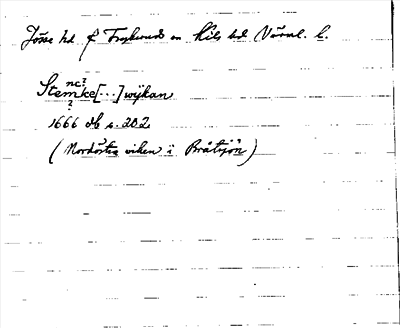 Jösse hd f Fryksände nu Kils hd Värml. l.
nc?
Stemke[...]wijkan
?
1666 db s. 202
(Nordöstra viken i Bråtsjön)